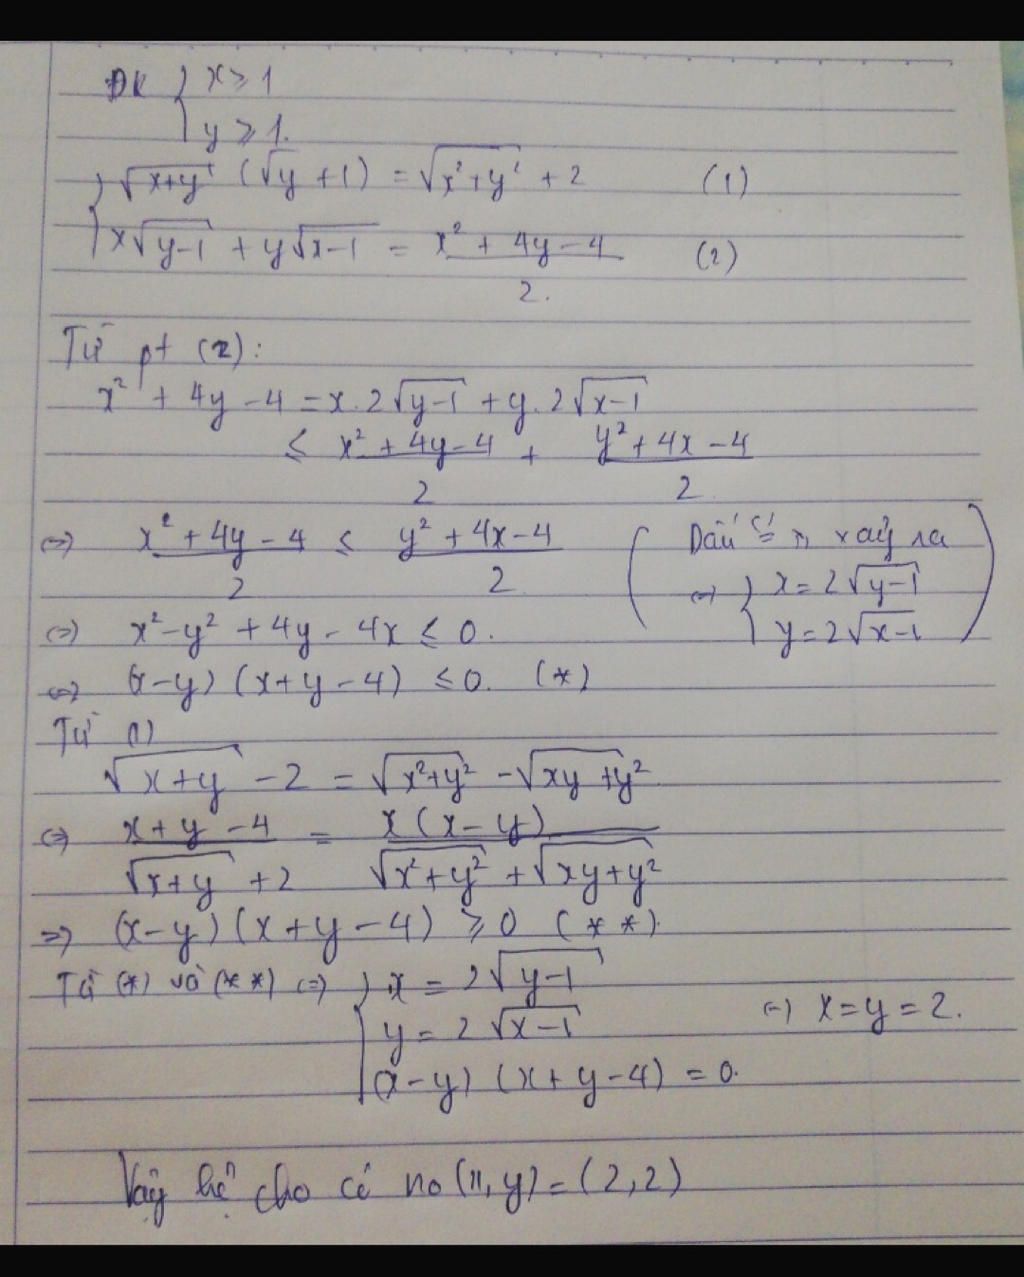 ĐK { x ≥ 1
y ≥ 1.
{ √(x+y) (√y + 1) = √(x² + y²) + 2 (1)
x√(y-1) + y√(x-1) = (x² + 4y - 4)/2. (2)
Từ pt (2):
x² + 4y - 4 = x.2√(y-1) + y.2√(x-1)
≤ (x² + 4y - 4)/2 + (y² + 4x - 4)/2
⇔ (x² + 4y - 4)/2 ≤ (y² + 4x - 4)/2
(Dấu "="  xảy ra
⇔ { x = 2√(y-1)
y = 2√(x-1) )
⇔ x² - y² + 4y - 4x ≤ 0.
⇔ (x-y) (x+y-4) ≤ 0. (*)
Từ (1)
√(x+y) - 2 = √(x²+y²) - √(xy+y²)
⇔ (x+y-4)/(√(x+y) + 2) = x(x-y)/(√(x²+y²) + √(xy+y²))
⇒ (x-y)(x+y-4) ≥ 0 (**).
Từ (*) và (**) ⇔ { x = 2√(y-1)
y = 2√(x-1) ⇔ x = y = 2.
(x-y) (x+y-4) = 0.
Vậy hệ cho có no (x,y) = (2,2)